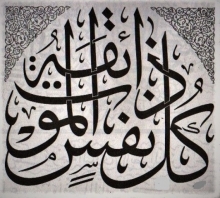 كل نفس ذائقة الموت